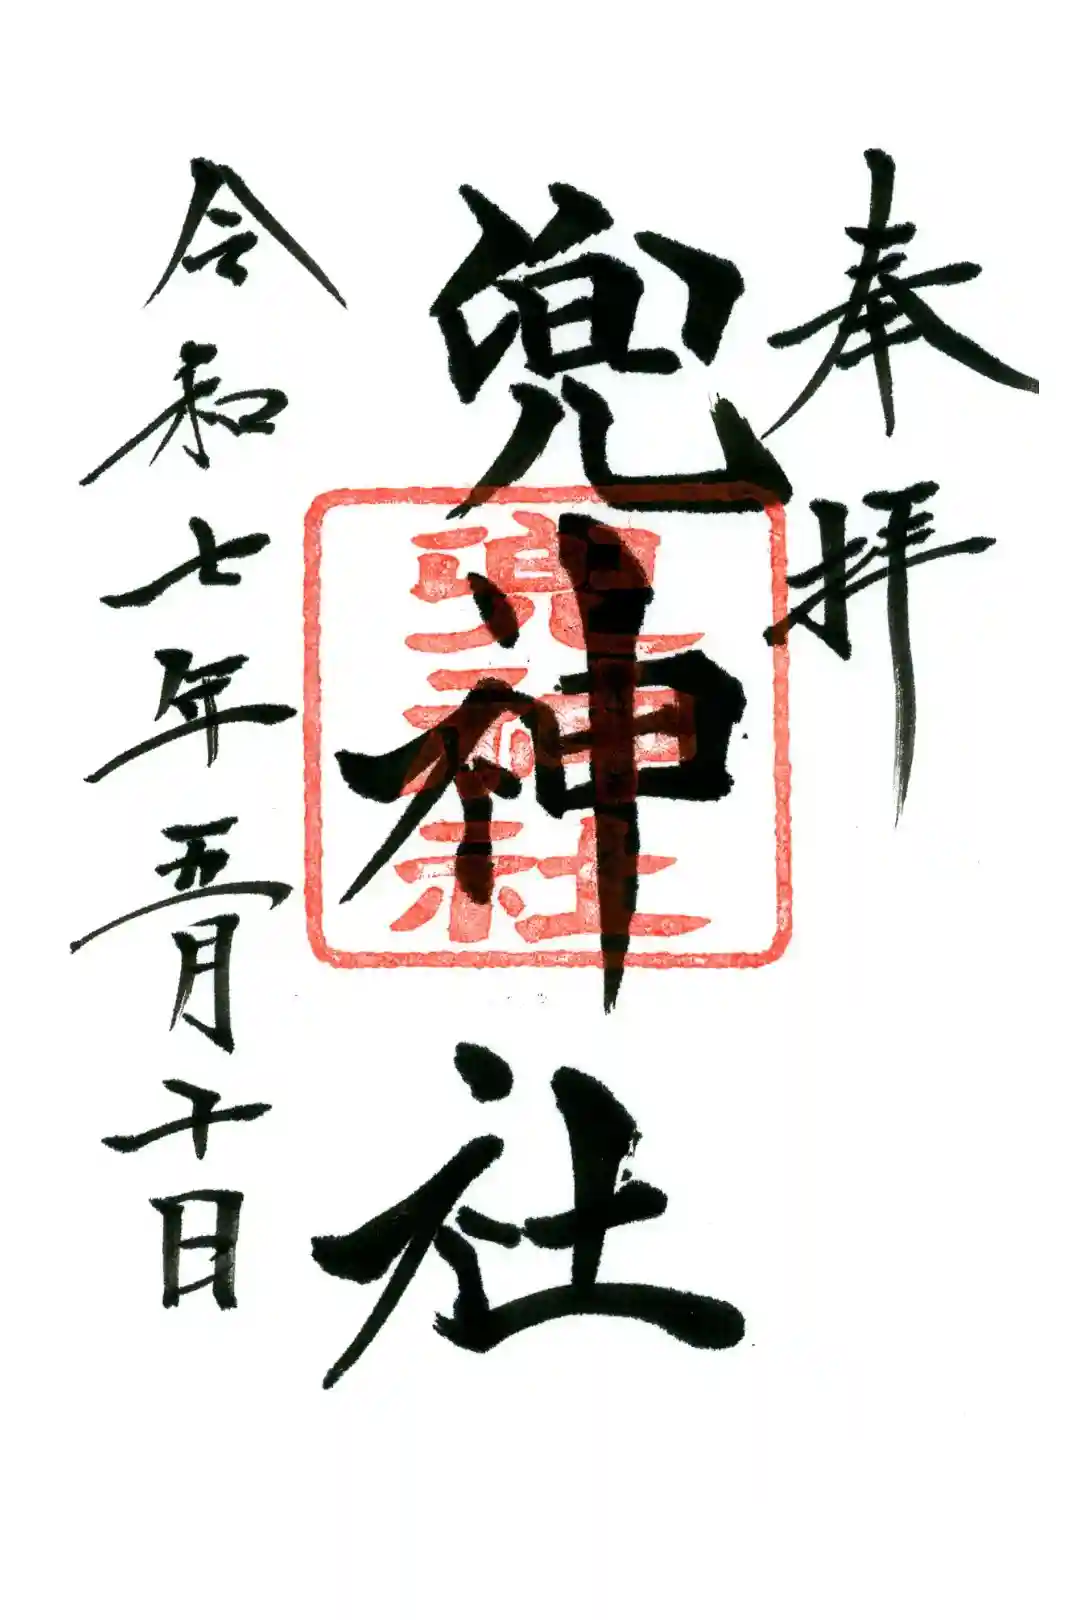 奉拝
兜神社
兜神社
令和七年五月十日